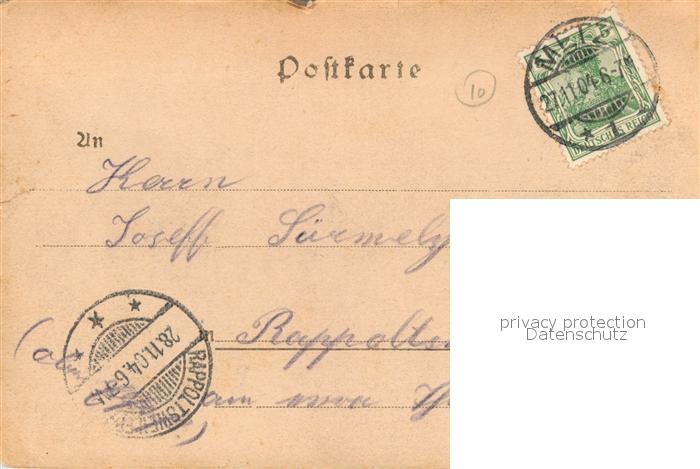 Postkarte
10
METZ
5
27.11.04.6-7
DEUTSCHES REICH
An
Herrn
Joseff Sürmely
in Rappolts
28.11.04.6-7
RAPPOLTSWEILER
am
privacy protection
Datenschutz